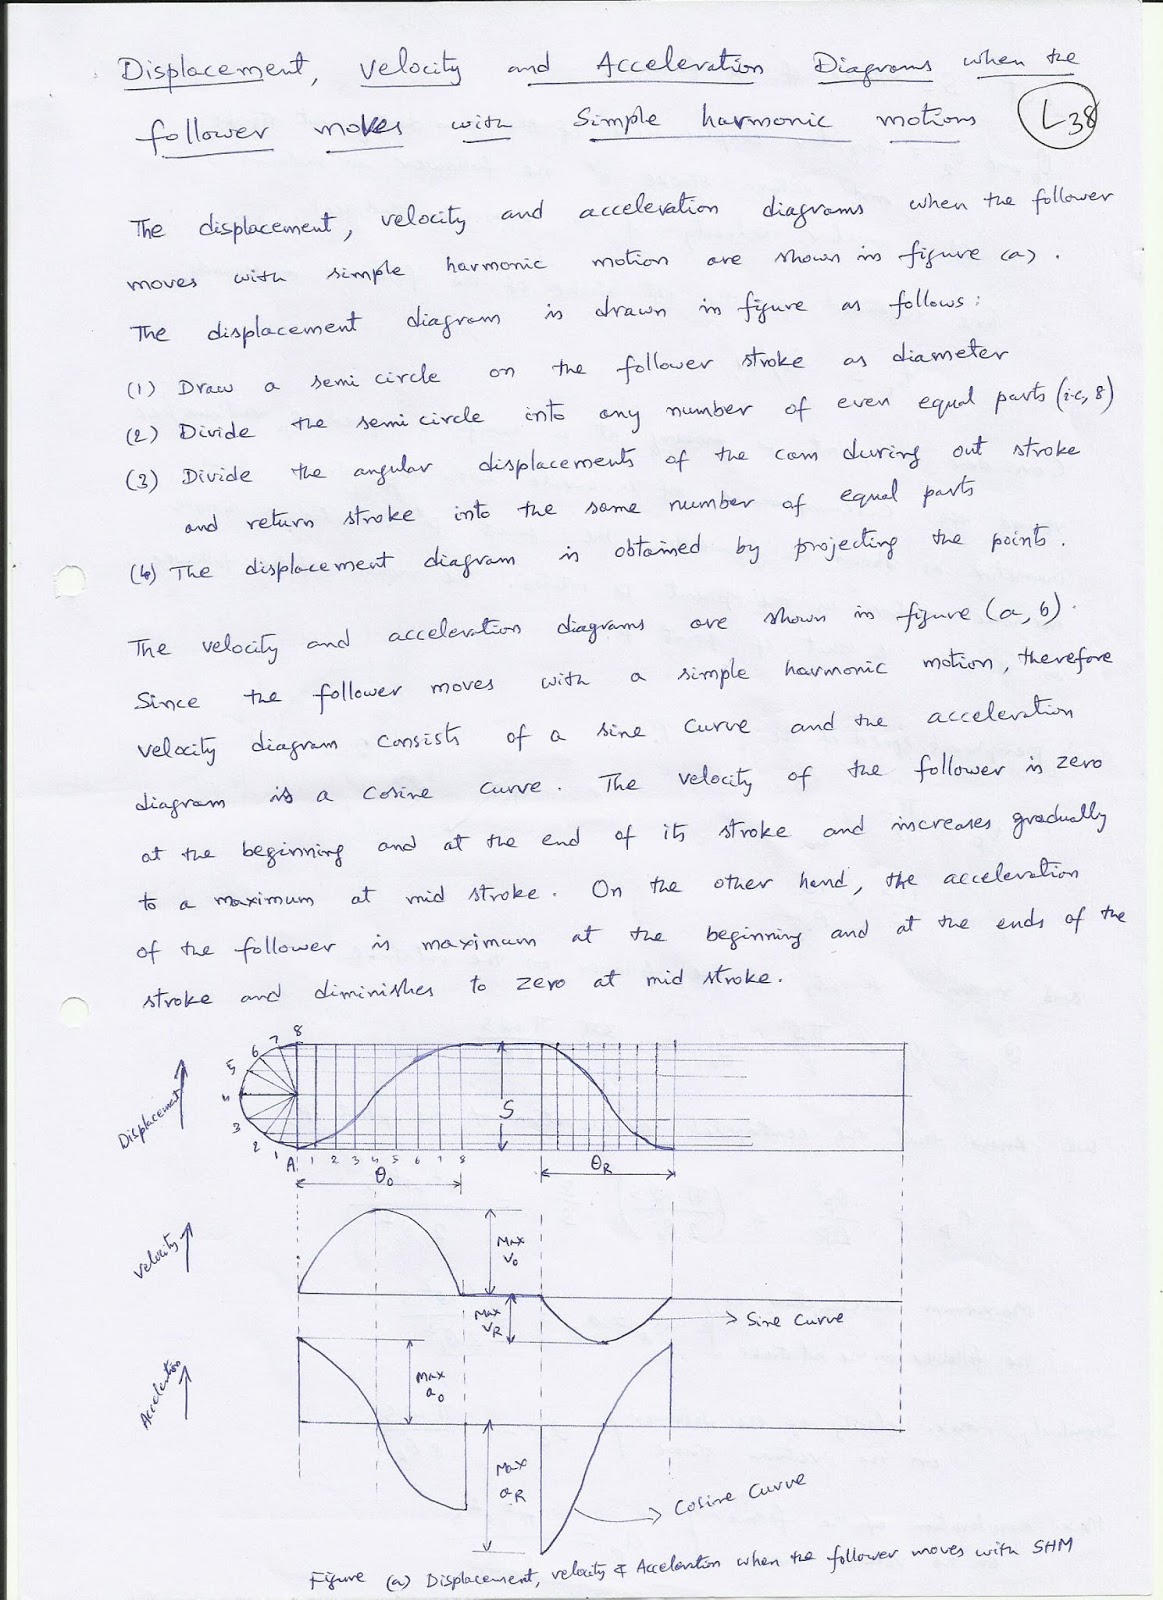 Displacement, Velocity and Acceleration Diagrams when the
follower moves with Simple harmonic motions L38
The displacement, velocity and acceleration diagrams when the follower
moves with simple harmonic motion are shown in figure (a).
The displacement diagram is drawn in figure as follows:
(1) Draw a semi circle on the follower stroke as diameter
(2) Divide the semi circle into any number of even equal parts (i.e, 8)
(3) Divide the angular displacements of the cam during out stroke
and return stroke into the same number of equal parts
(4) The displacement diagram is obtained by projecting the points.
The velocity and acceleration diagrams are shown in figure (a, b).
Since the follower moves with a simple harmonic motion, therefore
velocity diagram consists of a sine curve and the acceleration
diagram is a cosine curve. The velocity of the follower is zero
at the beginning and at the end of its stroke and increases gradually
to a maximum at mid stroke. On the other hand, the acceleration
of the follower is maximum at the beginning and at the ends of the
stroke and diminishes to zero at mid stroke.
8
7
6
5
4
3
2
1
A 1 2 3 4 5 6 7 8
Displacement
S
θo
θR
Velocity
Max
Vo
Max
VR
Sine curve
Acceleration
Max
ao
Max
aR
Cosine curve
Figure (a) Displacement, velocity & Acceleration when the follower moves with SHM